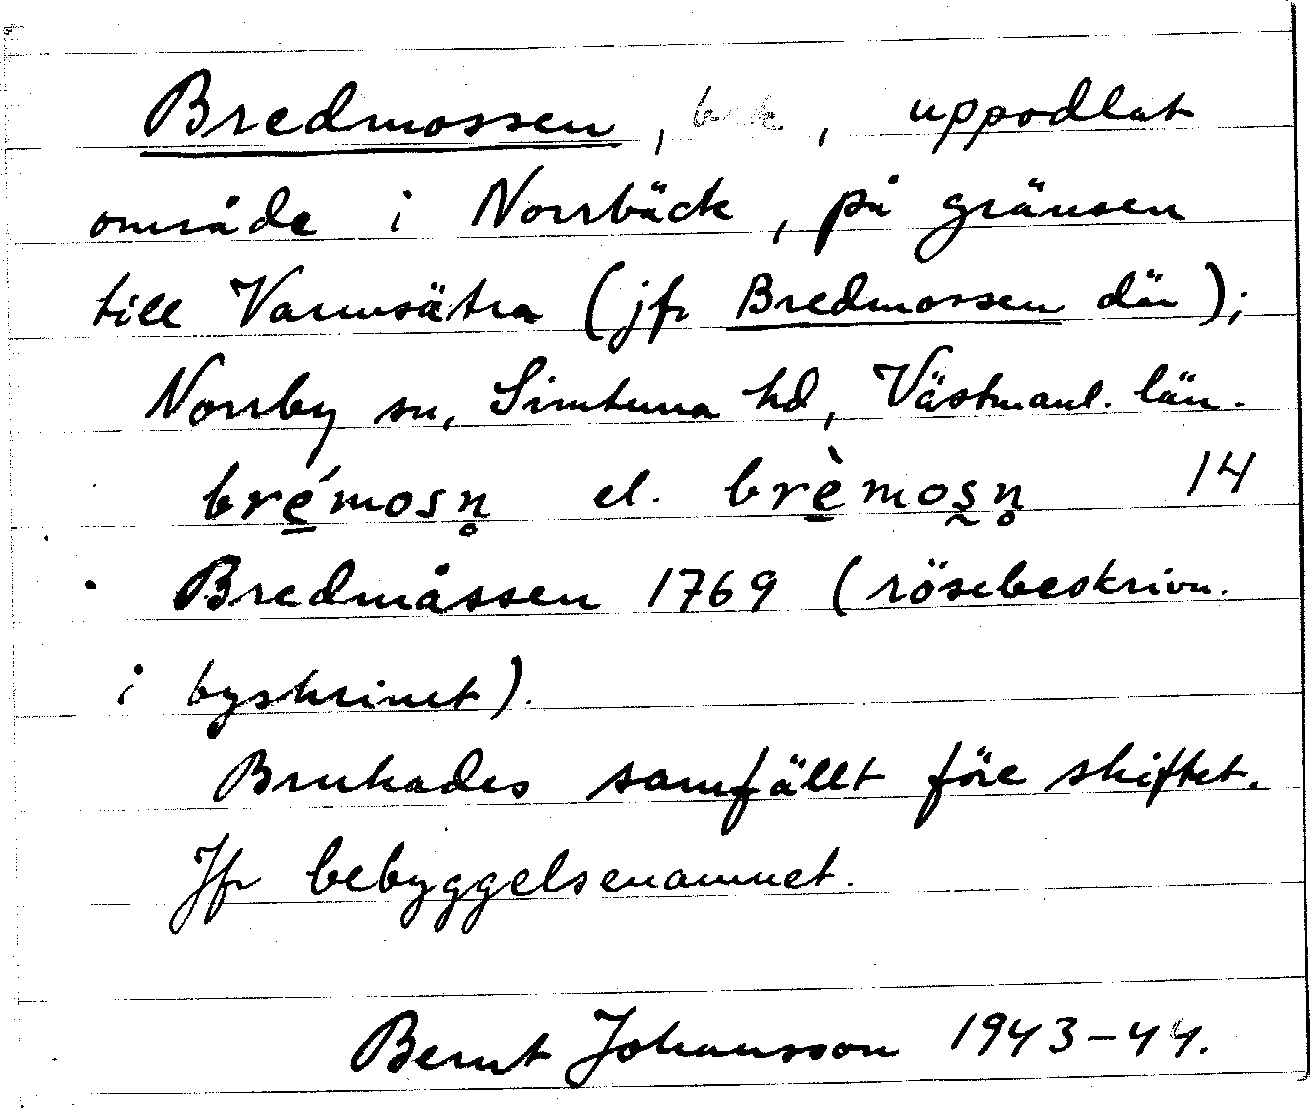 Bredmossen, , uppodlat
område i Norrbäck, på gränsen
till Vannsätra (jfr Bredmossen där);
Norrby sn, Simtuna hd, Västmanl. län.
bré̱mosn̥ el. brè̱mos̰n̥ 14
Bredmåssen 1769 (rösebeskrivn.
i byskrinet).
Brukades samfällt före skiftet.
Jfr bebyggelsenamnet.
Bernt Johansson 1943-44.